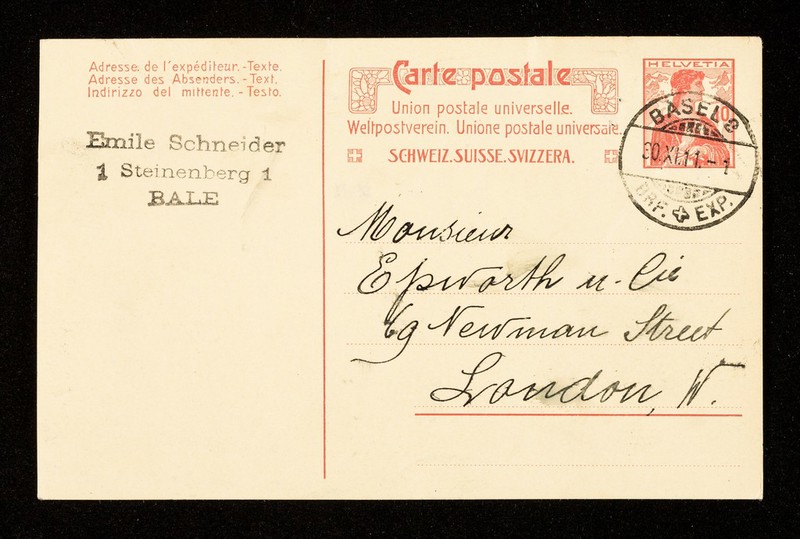 Adresse de l'expéditeur.-Texte.
Adresse des Absenders.-Text.
Indirizzo del mittente.-Testo.
Emile Schneider
1 Steinenberg 1
BALE
Carte postale
Union postale universelle.
Weltpostverein. Unione postale universale.
SCHWEIZ.SUISSE.SVIZZERA.
HELVETIA
10
BASEL 2
30.XI.11.-1
BRF. EXP.
Monsieur
Epworth u. Cie
69 Newman Street
London, W.